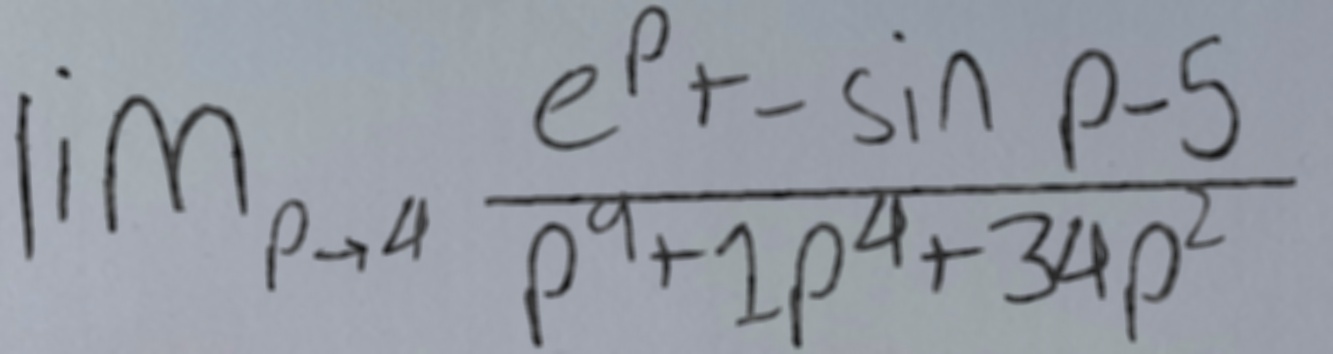 lim_{p→4} \frac{e^p + - sin p - 5}{p^9 + 1p^4 + 34p^2}